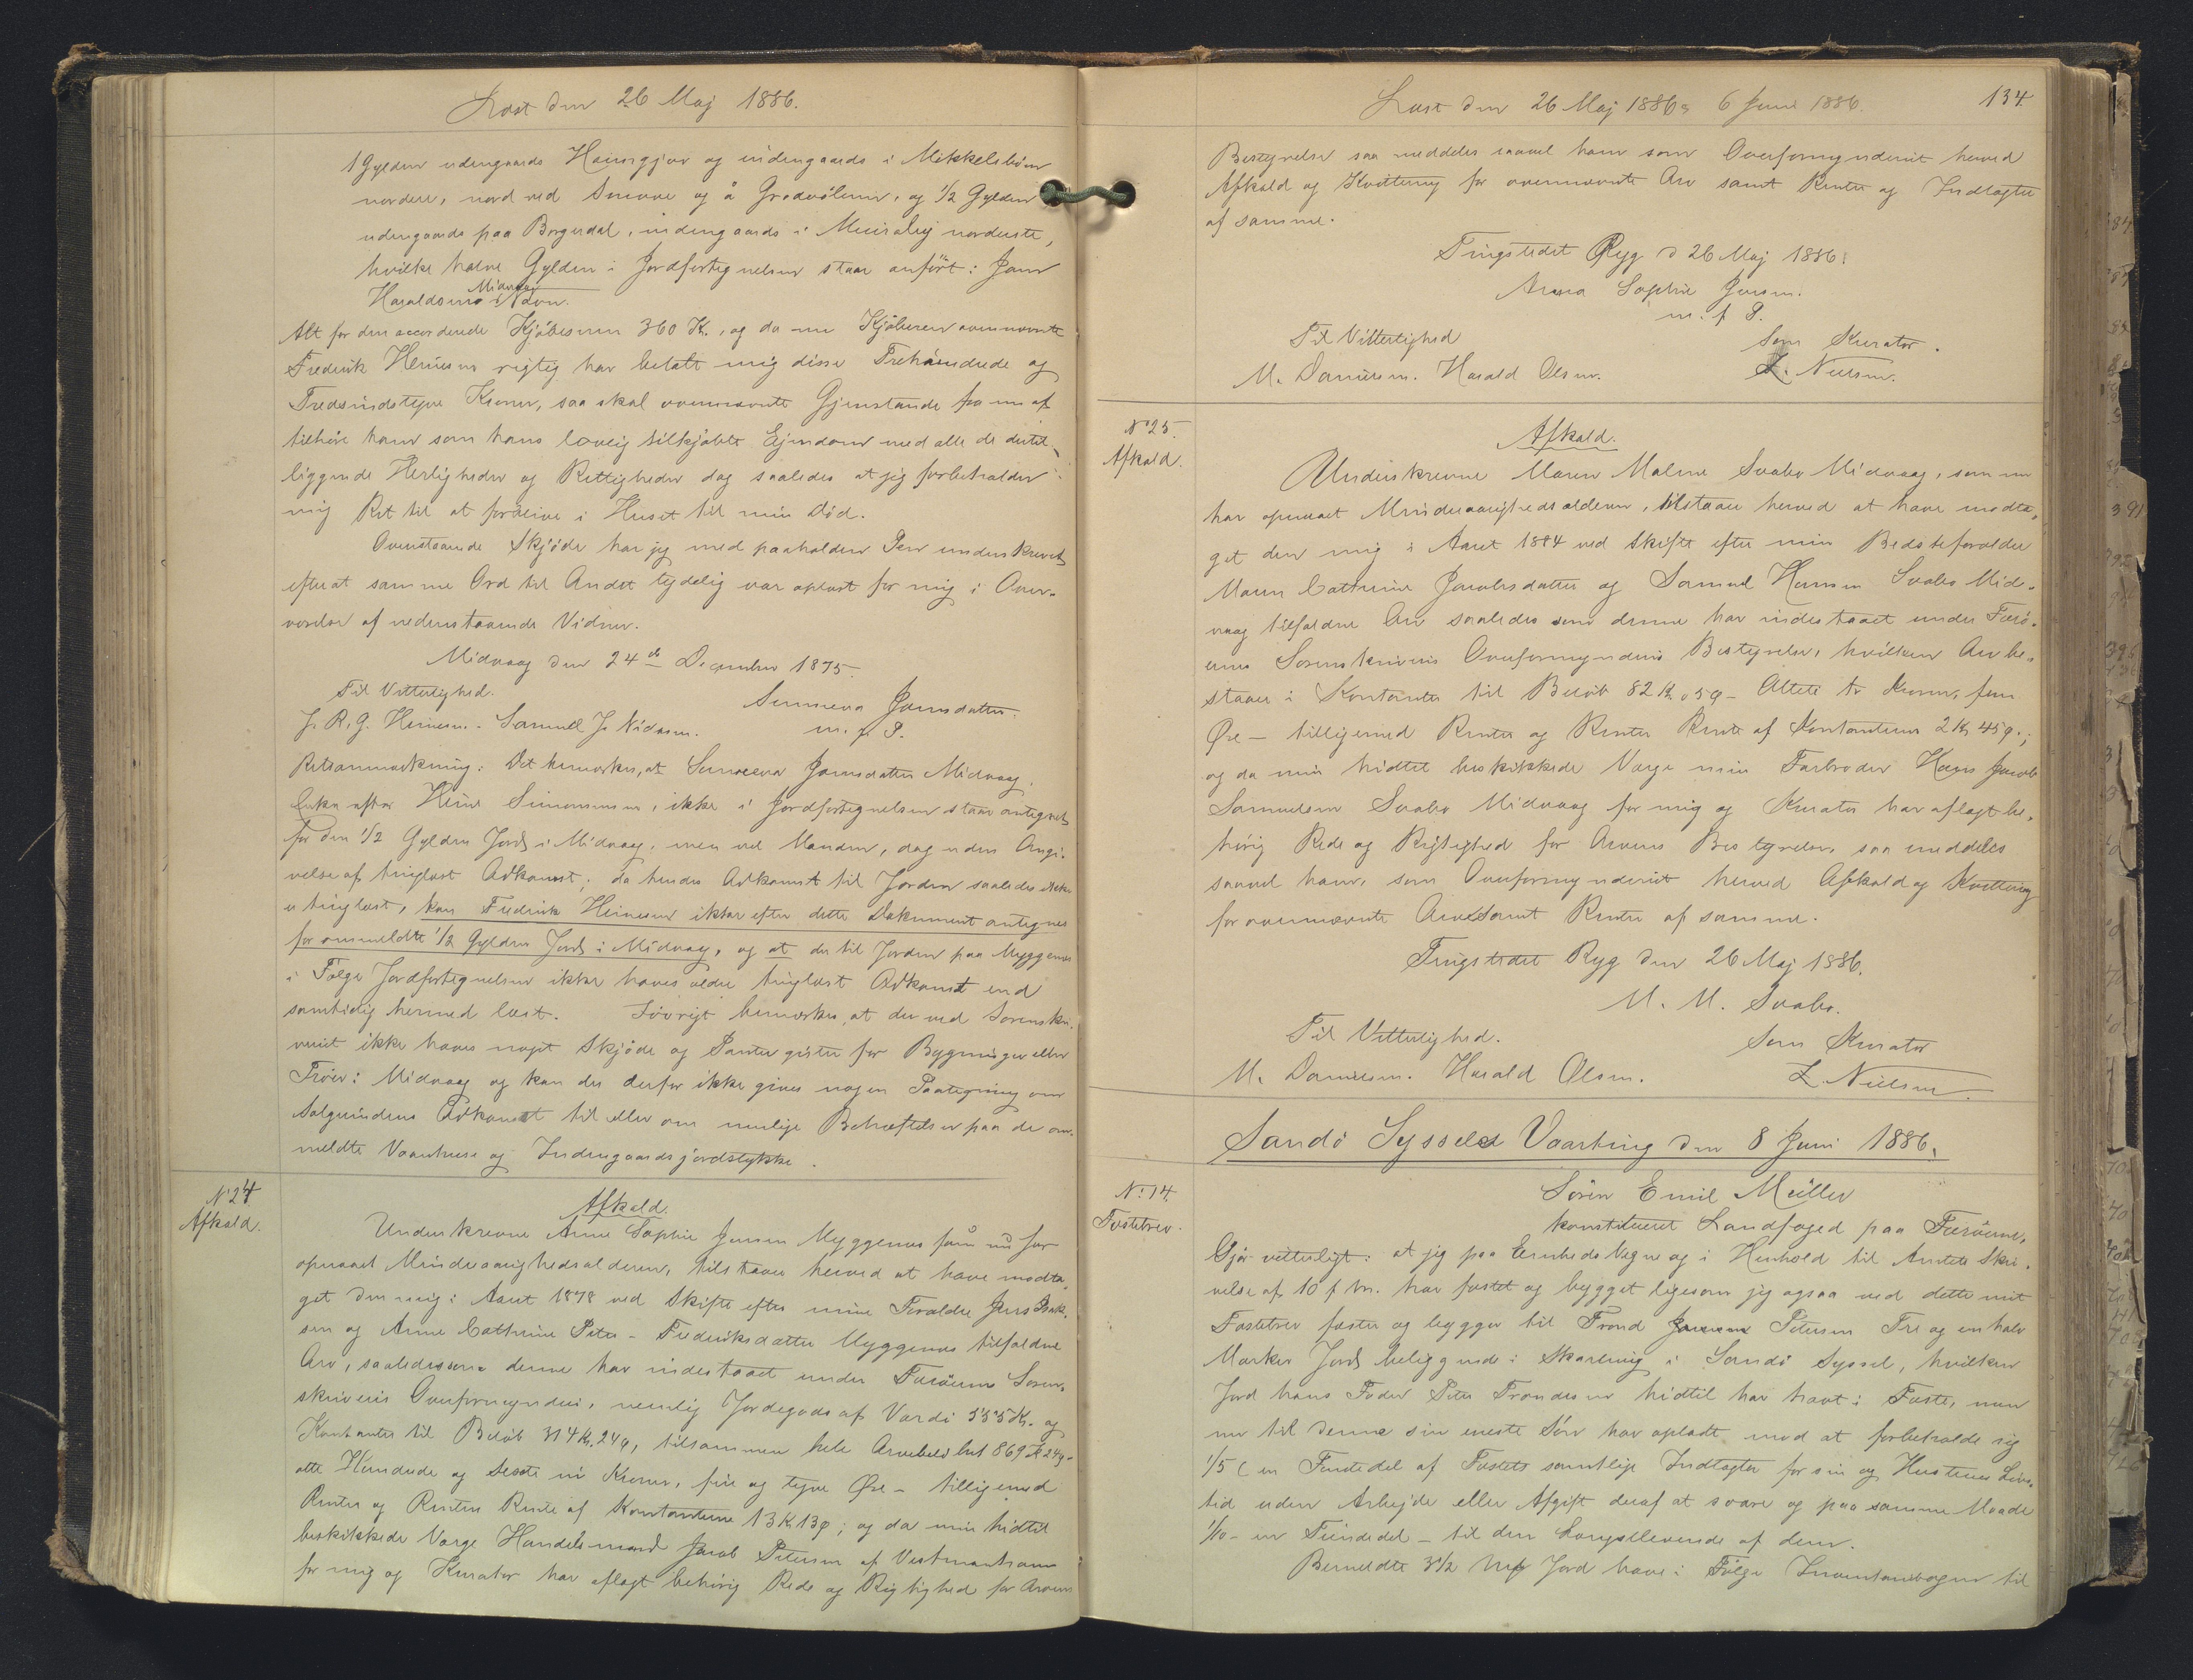 Læst den 26 Maj 1886.
1 Gylden udengaards Hamrgjov og indengaards i Mikkelsböur
nordere, nord ved Smerne og å Grodvölenne, og 1/2 Gylden
udengaards paa Borgardal, indengaards i Muiraleij norderste,
hvilke halve Gylden i Jordfortegnelsen staar anført: Joen
Haraldsens Midvaag Navn.
Alt for den accorderede Kjöbesum 360 Kr., og da nu Kjöberen ovennævnte
Frederik Heinesen rigtig har betalt mig disse Trehundrede og
Tredsindstyve Kroner, saa skal ovennævnte Gjenstande fra nu af
tilhöre ham som hans lovlig tilkjöbte Ejendom med alle de dertil
liggende Herligheder og Rettigheder dog saaledes at jeg forbeholder
mig Ret til at forblive i Huset til min Död.
Ovenstaaende Skjöde har jeg med paaholden Pen underskrevet
efterat samme Ord til Andet tydelig var oplæst for mig i Over-
værelse af nedenstaaende Vidner.
Midvaag den 24de December 1875.
Til Vitterlighed.
Sunneva Joensdatter
J. R. G. Heinesen. Samuel J. Nidsen.
m. f. P.
Retsanmærkning: Det bemærkes, at Sunneva Joensdatter Midvaag,
Enke efter Heine Simonsen, ikke i Jordfortegnelsen staar antegnet
for den 1/2 Gylden Jord i Midvaag, men vel Manden, dog uden Angi-
velse af tinglæst Adkomst; da hendes Adkomst til Jorden saaledes ikke
er tinglæst, kan Frederik Heinesen ikke efter dette Dokument antegnes
for ommeldte 1/2 Gylden Jord i Midvaag, og at der til Jorden paa Myggenæs
i Fölge Jordfortegnelsen ikke haves ældre tinglæst Adkomst end
samtidig hermed læst. Iövrigt bemærkes, at der ved Sorenskri-
veriet ikke haves noget Skjöde og Panteregister for Bygninger eller
Tröer i Midvaag og kan der derfor ikke gives nogen Paategning om
Salgerindens Adkomst til eller om mulige Behæftelser paa de om-
meldte Vaanhuse og Indengaardsjordstykke.
No 24
Afkald.
Afkald.
Underskrevne Anne Sophie Jensen Myggenæs som nu har
opnaaet Mindreaarighedsalderen, tilstaaer herved at have modta-
get den mig i Aaret 1878 ved Skifte efter mine Forældre Jens Isak-
sen og Anne Cathrine Peter-Frederiksdatter Myggenæs tilfaldne
Arv, saaledes som denne har indestaaet under Færöernes Soren-
skriveris Overformynderi, nemlig Jordegods af Værdi 555 Kr. og
Kontanter til Belöb 314 Kr. 24 ø, tilsammen hele Arvebelöbet 869 Kr 24 ø -
otte Hundrede og Treds ni Kroner, fire og tyve Øre - tilligemed
Renter og Renters Rente af Kontanterne 13 Kr 13 ø; og da min hidtil
beskikkede Værge Handelsmand Jacob Petersen af Vestmanhavn
for mig og Kurator har aflagt behörig Rede og Rigtighed for Arvens
Læst den 26 Maj 1886 og 6 Juni 1886.
134
Bestyrelse saa meddeles saavel ham som Overformynderiet herved
Afkald og Kvittering for ovennævnte Arv samt Renter og Indtægter
af samme.
Tingstedet Ryg d 26 Maj 1886.
Anna Sophie Jensen.
m. f. P.
Til Vitterlighed
Som Kurator.
M. Danielsen. Harald Olsen.
Z. Nielsen.
No 25.
Afkald.
Afkald.
Underskrevne Maren Malene Svabo Midvaag, som nu
har opnaaet Mindreaarighedsalderen, tilstaaer herved at have modta-
get den mig i Aaret 1884 ved Skifte efter min Bedsteforældre
Maren Cathrine Jacobsdatter og Samuel Hansen Svabo Mid-
vaag tilfaldne Arv saaledes som denne har indestaaet under Færö-
ernes Sorenskriveris Overformynderis Bestyrelse, hvilken Arv be-
staaer i Kontanter til Belöb 82 Kr. 05 ø - Otteti to Kroner, fem
Øre - tilligemed Renter og Renters Rente af Kontanterne 2 Kr 45 ø;
og da min hidtil beskikkede Værge min Farbroder Hans Jacob
Samuelsen Svabo Midvaag for mig og Kurator har aflagt be-
hörig Rede og Rigtighed for Arvens Bestyrelse, saa meddeles
saavel ham, som Overformynderiet herved Afkald og Kvittering
for ovennævnte Arv samt Renter af samme.
Tingstedet Ryg den 26 Maj 1886.
M. M. Svabo.
Til Vitterlighed.
Som Kurator
M. Danielsen. Harald Olsen.
Z. Nielsen.
Sandö Syssels Vaarting den 8 Juni 1886.
No 14.
Fæstebrev.
Sören Emil Müller
konstitueret Landfoged paa Færöerne,
Gjör vitterligt: at jeg paa Embeds Vegne og i Henhold til Amtets Skri-
velse af 10 f. M. har fæstet og bygget ligesom jeg ogsaa ved dette mit
Fæstebrev fæster og bygger til Trond Petersen Tre og en halv
Marker Jord beliggende i Skarling i Sandö Syssel, hvilken
Jord hans Fader Peter Trondesen hidtil har havt i Fæste, men
nu til denne sin eneste Sön har opladt mod at forbeholde sig
1/5 (en Femtedel af Fæstets samtlige Indtægter for sin og Hustrues Livs-
tid uden Arbejde eller Afgift deraf at svare og paa samme Maade
1/10 - en Tiendedel - til den Længstlevende af dem.
Bemeldte 3 1/2 Mrk Jord have i Fölge Inventariebogen til